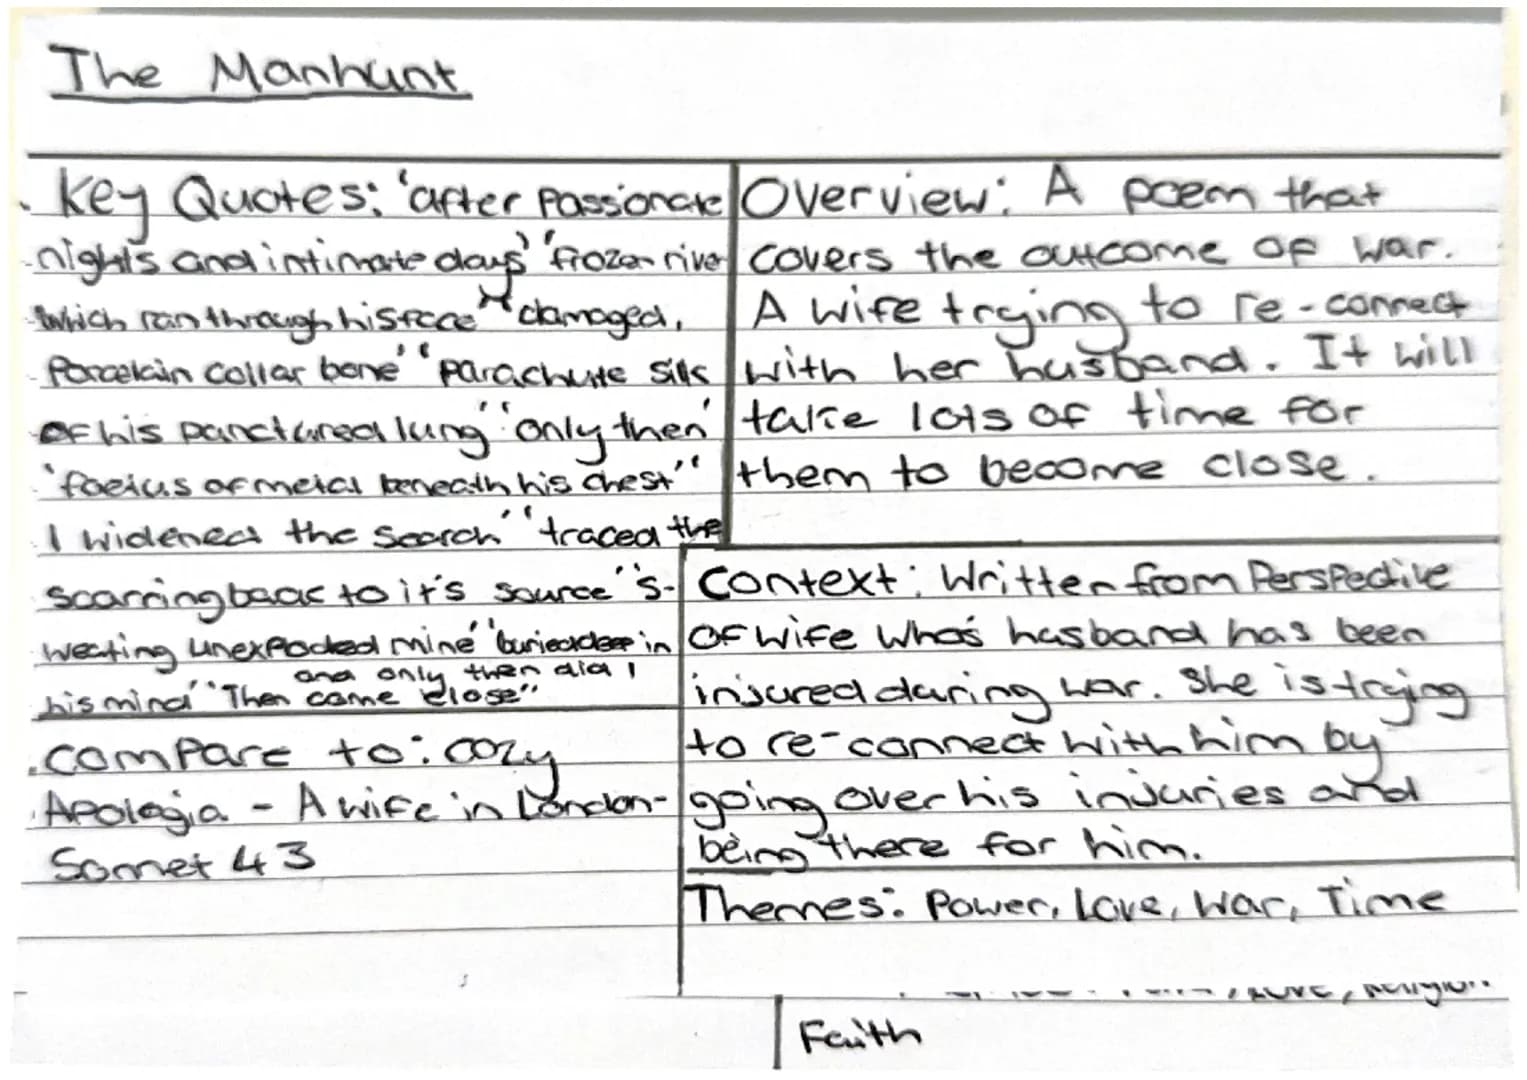 The Manhunt
Key Quotes: 'after Passionate
nights and intimate days' 'frozen river
which ran through his face' 'damaged,
Porcelain collar bone' 'parachute silk
of his punctured lung' 'only then'
'foetus of metal beneath his chest' '
I widened the search' 'traced the
scarring back to it's source' 's-
weating unexploded mine' 'buried deep in
his mind' "Then and only then did I
came close"
Compare to: cozy
Apologia - A wife in London-
Sonnet 43
Overview: A poem that
covers the outcome of war.
A wife trying to re-connect
with her husband. It will
take lots of time for
them to become close.
Context: Written from Perspective
of wife who's husband has been
injured during war. She is trying
to re-connect with him by
going over his injuries and
being there for him.
Themes: Power, Love, War, Time
Love, Religion
Faith